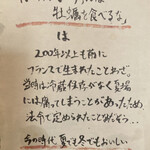 牡蠣を食べるな」
は
200年以上も前に
フランスで生まれたことわざ。
当時は冷蔵保存がなく夏場
には腐ってしまうことがあったため
法令で定められたことだそう…
今の時代 夏でも冬でもおいしい